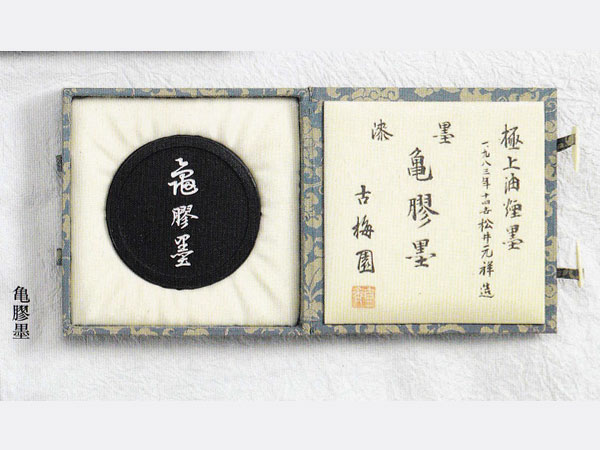 極上油煙墨
一九八三年十四世松井元祥造
漆墨
亀膠墨
古梅園
亀膠墨
亀膠墨